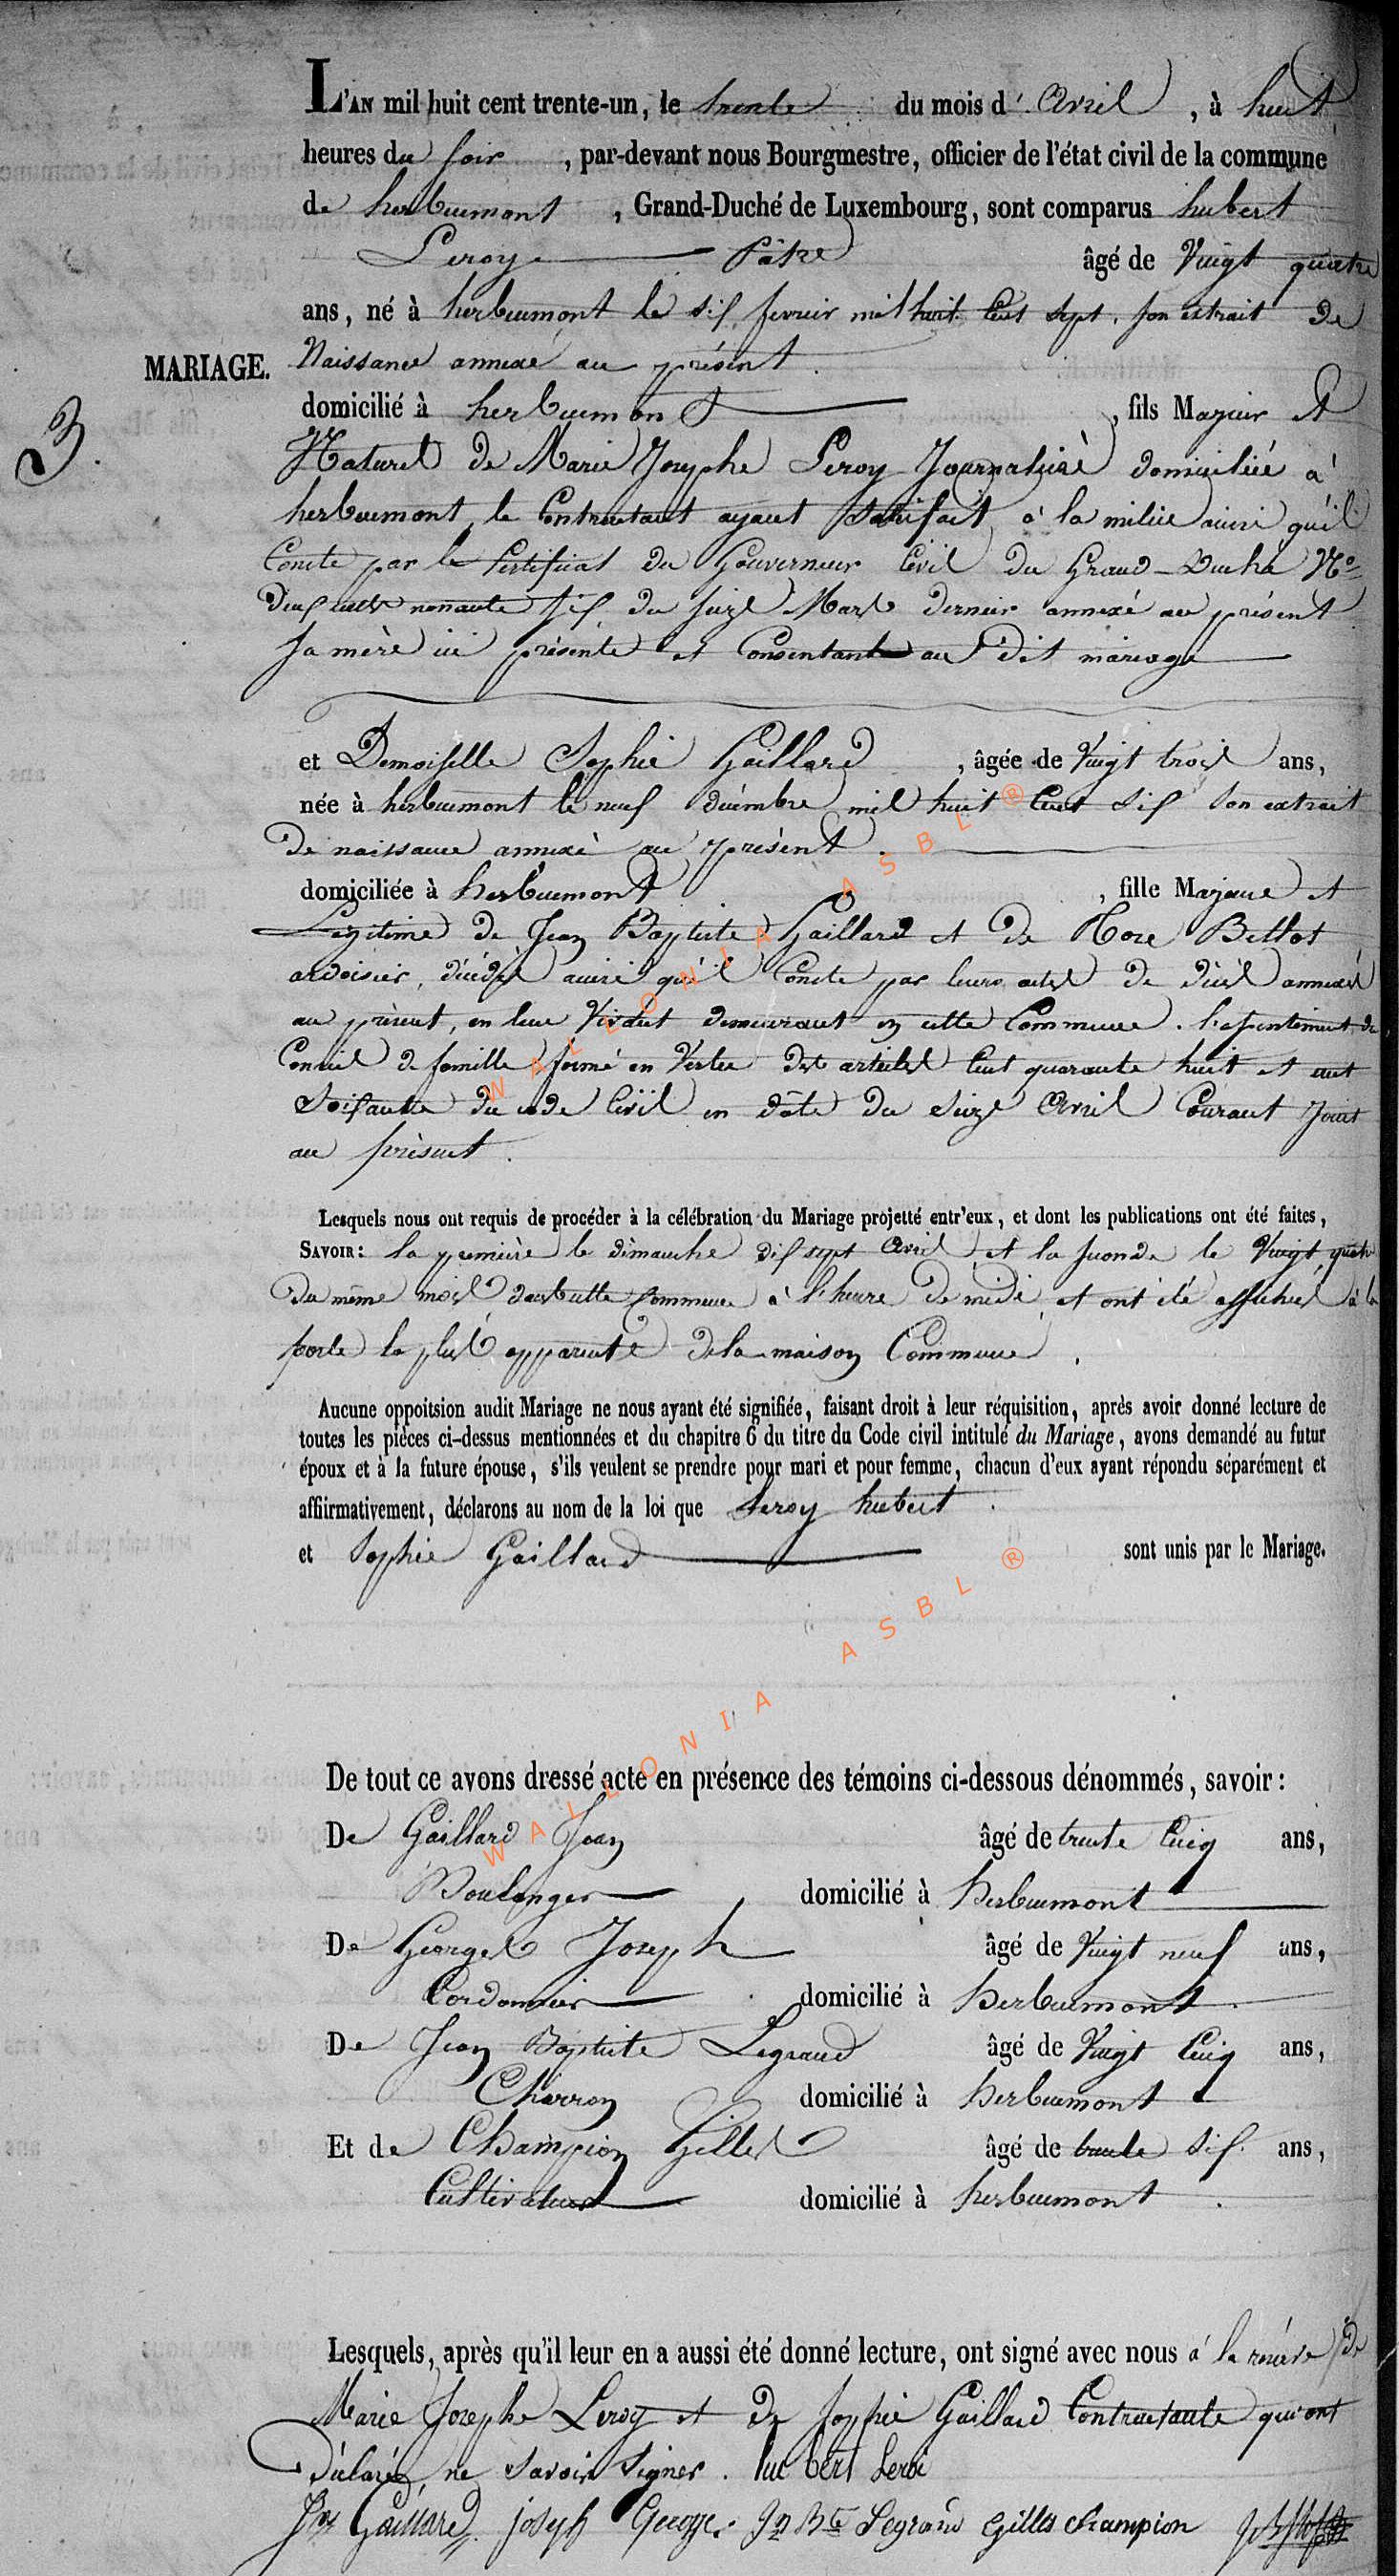 L'AN mil huit cent trente-un, le trente du mois d' Avril, à huit
heures du soir, par-devant nous Bourgmestre, officier de l'état civil de la commune
de herbeumont, Grand-Duché de Luxembourg, sont comparus hubert
Leroy Pâtre âgé de Vingt quatre
ans, né à herbeumont le dix fevrier mil huit Cent sept, son extrait de
MARIAGE. Naissance annexé au présent.
domicilié à herbeumont, fils Majeur et
3.
Naturel de Marie Josephe Leroy Journalière domiciliée à
herbeumont, le Contractant ayant satisfait à la milice ainsi qu'il
Conste par le Certificat du Gouverneur Civil du Grand-Duché No
nonante six du seize Mars dernier annexé au présent
sa mère ici présente et Consentante au dit mariage
et Demoiselle Sophie Gaillard, âgée de Vingt trois ans,
née à herbeumont le neuf décembre mil huit Cent six son extrait
de naissance annexé au présent.
domiciliée à herbeumont, fille Majeure et
Légitime de Jean Baptiste Gaillard et de Rose Bellot
ardoisier, décédés ainsi qu'il Conste par leurs actes de décès annexés
au présent, en leur Vivant demeurant en cette Commune. de
Conseil de famille formé en Vertu des articles Cent quarante huit et cent
Soixante du code Civil en date du Seize Avril Courant Joint
au présent.
Lesquels nous ont requis de procéder à la célébration du Mariage projetté entr'eux, et dont les publications ont été faites,
SAVOIR: la première le dimanche dix sept Avril et la seconde le Vingt quatre
du même mois dans cette Commune à l'heure de midi et ont été affichés à la
porte la plus apparente de la maison Commune.
Aucune oppoitsion audit Mariage ne nous ayant été signifiée, faisant droit à leur réquisition, après avoir donné lecture de
toutes les pièces ci-dessus mentionnées et du chapitre 6 du titre du Code civil intitulé du Mariage, avons demandé au futur
époux et à la future épouse, s'ils veulent se prendre pour mari et pour femme, chacun d'eux ayant répondu séparément et
affiirmativement, déclarons au nom de la loi que Leroy hubert
et Sophie Gaillard sont unis par le Mariage.
De tout ce avons dressé acte en présence des témoins ci-dessous dénommés, savoir:
De Gaillard Jean âgé de trente Cinq ans,
Boulanger domicilié à herbeumont
De Georges Joseph âgé de Vingt neuf ans,
Cordonnier domicilié à herbeumont.
De Jean Baptiste Legrand âgé de Vingt Cinq ans,
Charron domicilié à herbeumont
Et de Champion Gilles âgé de trente six ans,
Cultivateur domicilié à herbeumont.
Lesquels, après qu'il leur en a aussi été donné lecture, ont signé avec nous à la réserve de
Marie Josephe Leroy et de Sophie Gaillard Contractante qui ont
déclarés ne savoir signer. hubert Leroi
Jn Gaillard joseph George Jn Bte Legrand gilles champion
WALLONIA ASBL ®
WALLONIA ASBL ®